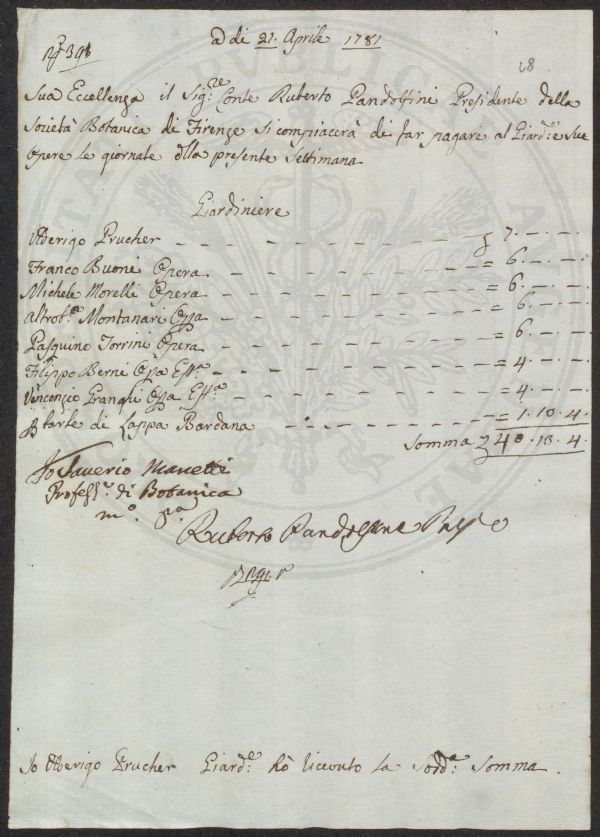 a dì 21. Aprile 1781
68
Sua Eccellenza il Sig:re Conte Ruberto Pandolfini Presidente della
Società Botanica di Firenze si compiacerà di far pagare al Giard:e e sue
Opere le giornate della presente Settimana
Giardiniere
Ulderigo Prucher 7. — . —
Franco Buoni Opera = 6. — . —
Michele Morelli Opera = 6. — . —
Montanari Opa = 6. — . —
Pasquino Torrini Opera = 6. — . —
Filippo Berni Opa Est:a = 4. — . —
Vincenzio Granghi Opa Est:a = 4. — . —
di Lappa Bardana = 1. 13. 4.
Somma 40. 13. 4
Io Saverio Manetti
Profess:e di Botanica
m:o p:a
Ruberto Pandolfini
Io Ulderigo Prucher Giard:e hò riceuto la Sodd:a Somma .
PUBLICAE